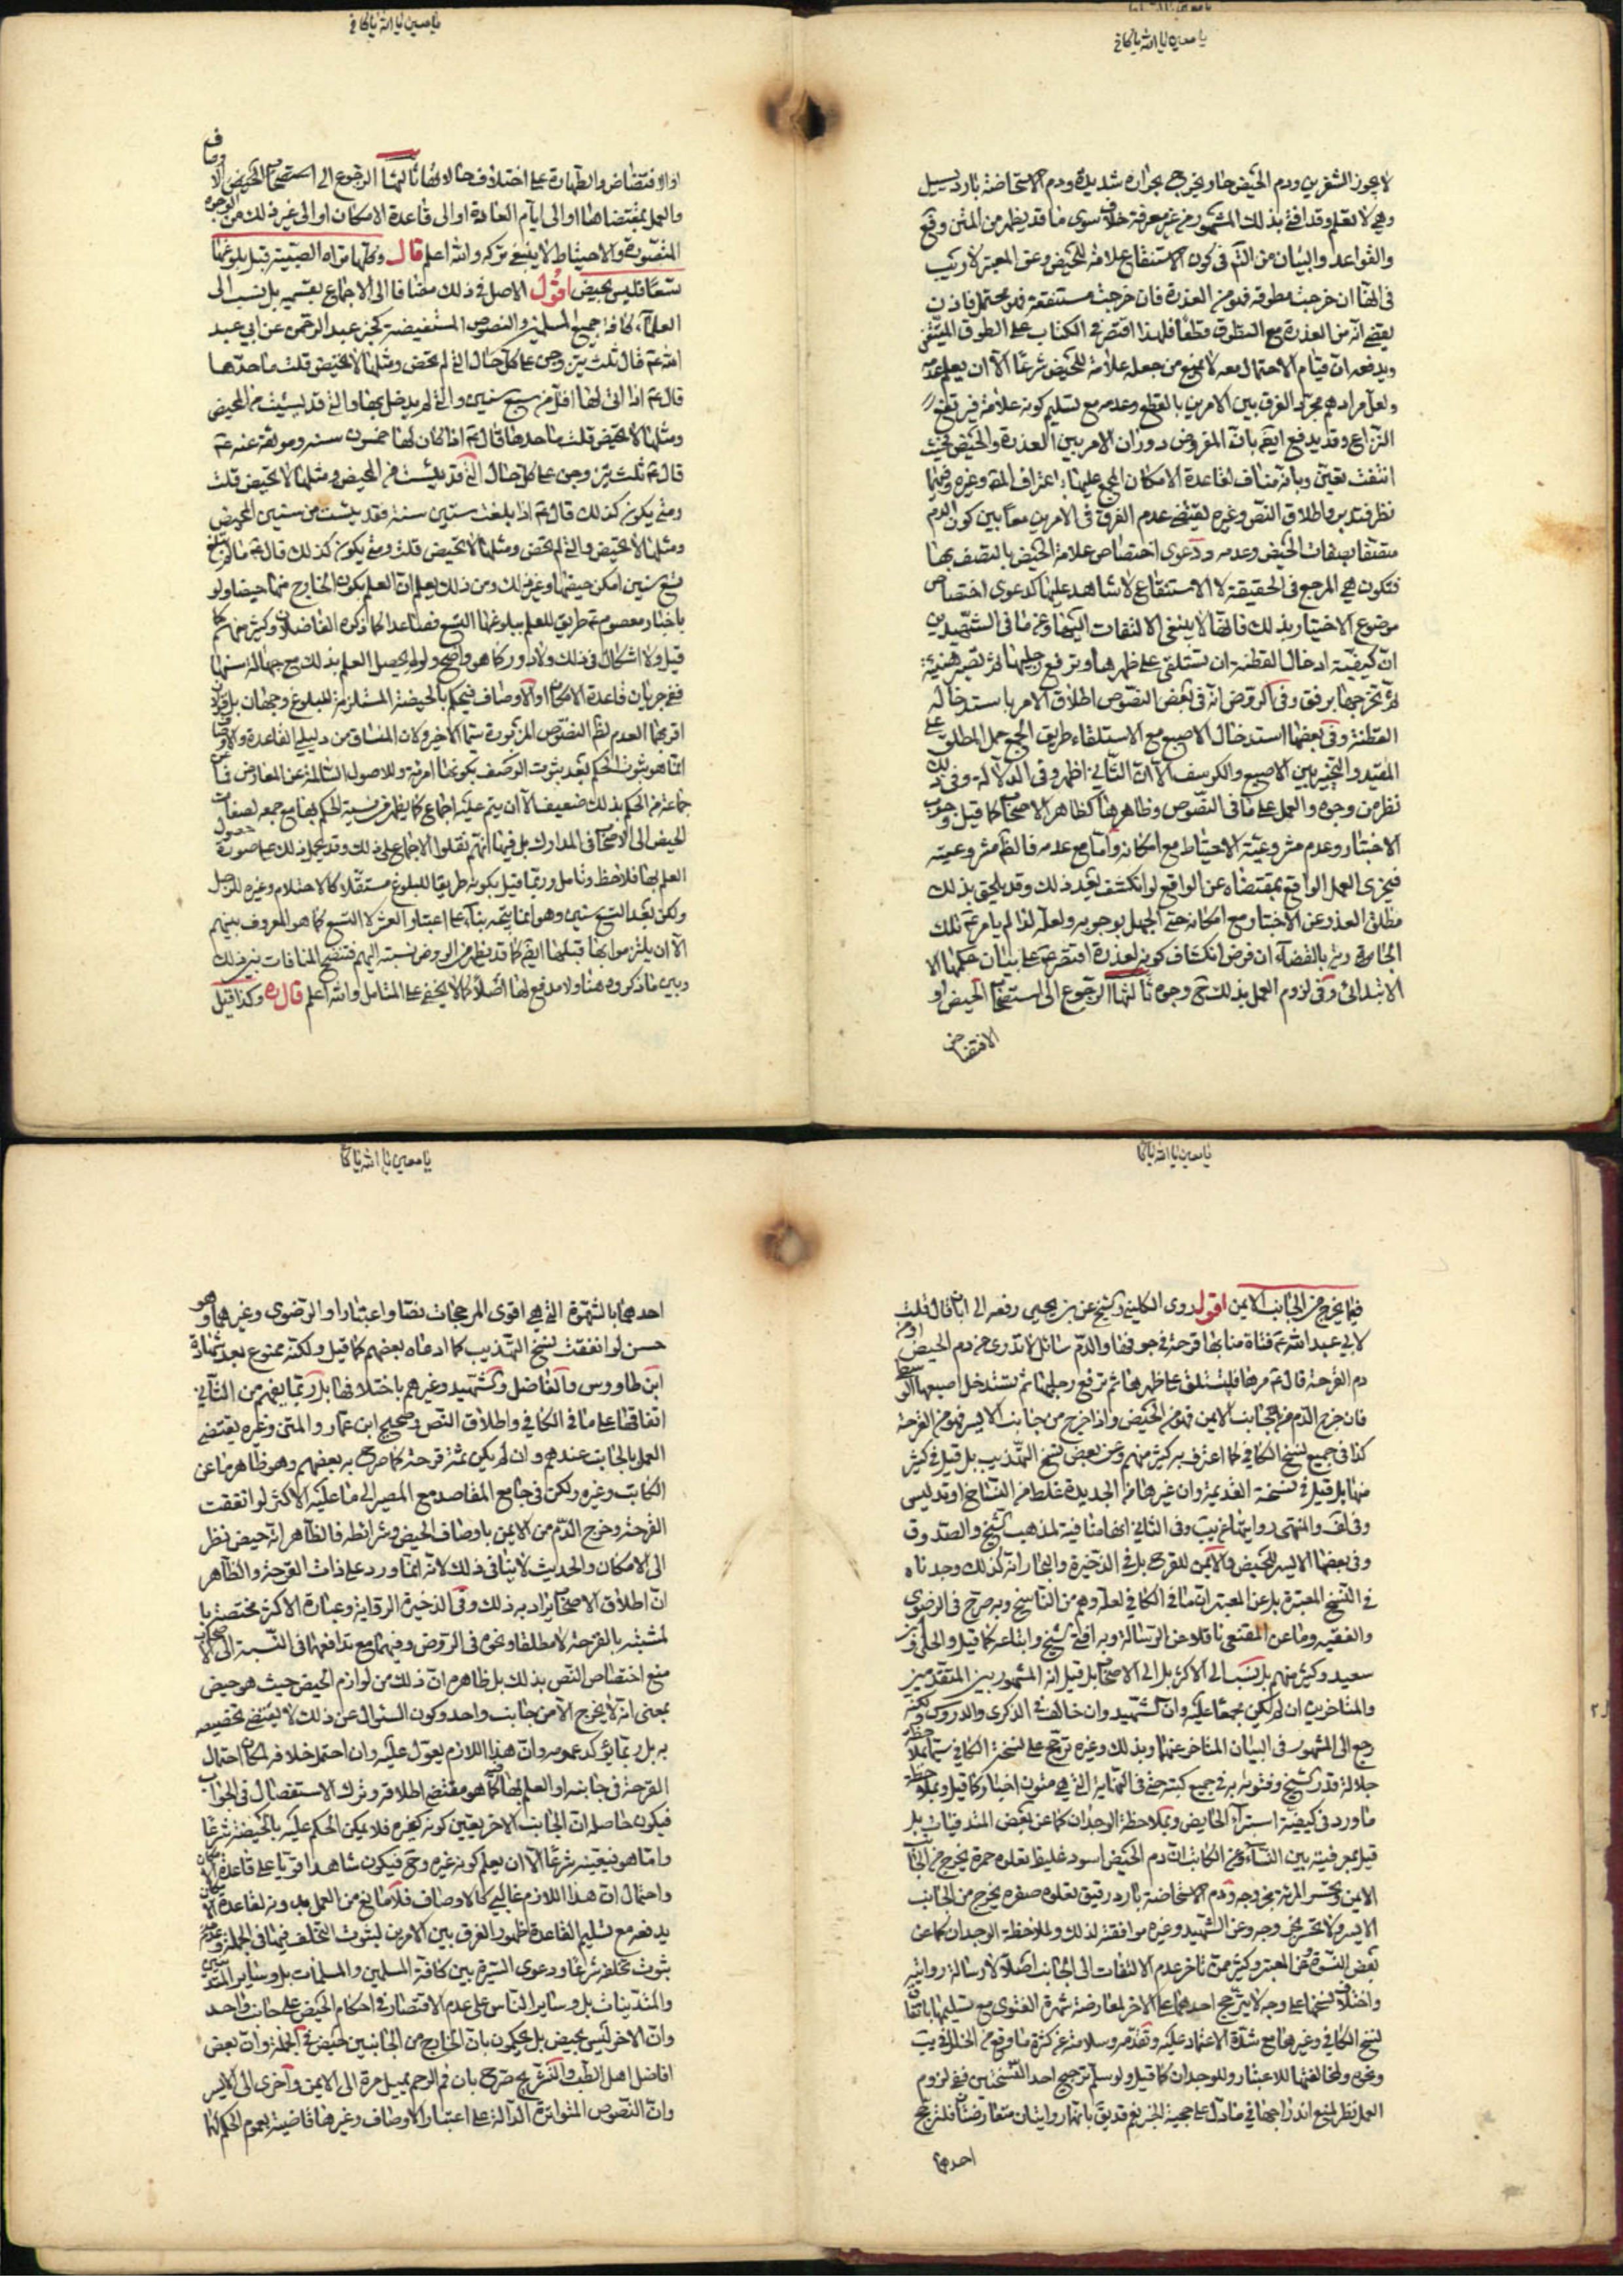 يا معين يا الله يا كافي
لا يجوز الشفرين ودم الحيض حار يخرج بحرارة شديدة ودم الاستحاضة بارد يسيل
وهي لا تعلم وقد افتى بذلك المشهور من غير معرفة خلاف سوى ما قد يظهر من المتن وقع
والقواعد والبيان من التأمل في كون الاستنقاع علامة للحيض وعن المعتبر لا ريب
في انها ان خرجت مطوقة فهو من العذرة فان خرجت مستنقعة فهو محتمل فاذن
يقضى انه من العذرة مع التطوق قطعا فلهذا اقتصر في الكتاب على الطوق المتيقن
ويدفعه ان قيام الاحتمال معه لا يمنع من جعله علامة للحيض شرعا الا ان يعلم عدمه
ولعل مرادهم مجرد الفرق بين الامرين بالقطع وعدمه مع تسليم كونه علامة فيرتفع
النزاع وقد يدفع ايضا بان المفروض دوران الامر بين العذرة والحيض فحيث
انتفت تعين وبانه مناف لقاعدة الامكان المجمع عليها باعتراف المصنف وغيره وفيهما
نظر فتدبر واطلاق النص وغيره يقتضي عدم الفرق في الامرين معا بين كون الدم
متصفا بصفات الحيض وعدمه ودعوى اختصاص علامة الحيض بالتصف بها
فتكون هي المرجع في الحقيقة لا الاستنقاع لا شاهد عليها كدعوى اختصاص
موضوع الاختبار بذلك فانها لا ينبغي الالتفات اليها وعن ما في الشهيدين
ان كيفية ادخال القطنة ان تستلقي على ظهرها وترفع رجليها ثم تصبر هنيئة
ثم تخرجها برفق وفي الروض انه في بعض النصوص اطلاق الامر باستدخال
القطنة وفي بعضها استدخال الاصبع مع الاستلقاء وطريق الجمع حمل المطلق على
المقيد والتخيير بين الاصبع والكرسف الا ان الثاني اظهر في الدلالة وفي ذلك
نظر من وجوه والعمل على ما في النصوص وظاهرها كظاهر الاصحاب كما قيل وجوب
الاختبار وعدم مشروعية الاحتياط مع امكانه واما مع عدمه فالظاهر مشروعيته
فيجزى العمل الواقع بمقتضاه عن الواقع لو انكشف بعد ذلك وقد يلحق بذلك
مطلق العذر عن الاختبار مع امكانه حتى الجهل بوجوبه ولعله لذا لم يأمر عم تلك
الجارية بالقضاء ان فرض انكشاف كونه لعذرة اقتصر عم على بيان حكمها الا
الابتدائي وفي لزوم العمل بذلك ح وجوه ثالثها الرجوع الى استصحاب الحيض او
الافتضاض
يا معين يا الله يا كافي
او الافتضاض والطهارة على اختلاف حالاتها ثالثها الرجوع الى استصحاب الحيض الاوصاف
والعمل بمقتضاها او الى ايام العادة او الى قاعدة الامكان او الى غير ذلك من الوجوه
المتصورة والاحتياط لا ينبغي تركه والله اعلم قال وكلما تراه الصبية قبل بلوغها
تسعا فليس بحيض اقول الاصل في ذلك مضافا الى الاجماع بقسميه بل نسب الى
العلماء كافة جميع المسلمين والنصوص المستفيضة كخبر عبد الرحمن عن ابي عبد
الله عم قال ثلث يتزوجن على كل حال التي لم تحض ومثلها لا تحيض قلت ما حدها
قال عم اذا اتى لها اقل من سبع سنين والتي لم يدخل بها والتي قد يئست من المحيض
ومثلها لا تحيض قلت ما حدها قال عم اذا كان لها خمسون سنة وموثقة عنه عم
قال عم ثلث يتزوجن على كل حال التي قد يئست من المحيض ومثلها لا تحيض قلت
ومتى يكون كذلك قال عم اذا بلغت ستين سنة فقد يئست من المحيض
ومثلها لا تحيض والتي لم تحض ومثلها لا تحيض قلت ومتى يكون كذلك قال عم ما لم تبلغ
تسع سنين امكن حيضها وغير ذلك ومن ذلك يعلم ان العلم بكون الخارج منها حيضا ولو
باخبار معصوم عم طريق للعلم ببلوغها التسع فصاعدا كما ذكره الفاضلان وكثير منهم كما
قيل ولا اشكال في ذلك ولا دور كما هو واضح ولو لم يحصل العلم بذلك مع جهالة سنها
ففي جريان قاعدة الامكان او الاوصاف فيحكم بالحيضية المستلزمة للبلوغ وجهان بل قولان
اقربهما العدم لظاهر النصوص المزبورة سيما الاخير ولان المنساق من دليلي القاعدة والاوصاف
انما هو ثبوت الحكم بعد ثبوت الوصف بكونها امرأة وللاصول السالمة عن المعارض فما عن
جماعة من الحكم بذلك ضعيف الا ان يتم عليه اجماع كما يظهر من نسبة الحكم بها مع جمعه لصفات
الحيض الى الاصحاب في المدارك بل فيها انهم نقلوا الاجماع على ذلك وقد يحمل ذلك على صورة حصول
العلم بها فلاحظ وتامل وربما قيل بكونه طريقا للبلوغ مستقلا كالاحتلام وغيره للرجل
ولكن بعد التسع سنين وهو انما يتم بناء على اعتبار العشر لا التسع كما هو المعروف بينهم
الا ان يلتزموا بها قبلها ايضا كما قد يظهر من الروض نسبته اليهم فتتضح المنافات بين ذلك
وبين ما ذكروه هنا ولا مدفع لها اصلا كما لا يخفى على المتامل والله اعلم قال ره وكذا قيل
يا معين يا الله يا كافي
فيما يخرج من الجانب الايمن اقول روى الكليني والشيخ عن بن يحيى رفعه الى ابان قال قلت
لابي عبد الله عم فتاة منا بها قرحة في جوفها والدم سائل لا تدري من دم الحيض او من
دم القرحة قال عم مرها فلتستلق على ظهرها ثم ترفع رجليها ثم تستدخل اصبعها الوسطى
فان خرج الدم من الجانب الايمن فهو من الحيض واذا خرج من جانب الايسر فهو من القرحة
كذا في جميع نسخ الكافي كما اعترف به كثير منهم وعن بعض نسخ التهذيب بل قيل في كثير
منها بل قيل في نسخة القديمة وان غيرها من الجديدة غلط من النساخ او تدليس
وفي لف والمنتهى روايتها غريب وفي الثاني انها منافية لمذهب الشيخ والصدوق
وفي بعضها الايسر للحيض والايمن للقرح بل في الذخيرة والبحار انه كذلك وجدناه
في النسخ المعتبرة بل عن المعتبر ان ما في الكافي لعله وهم من الناسخ وبه صرح في الرضوي
والفقيه وما عن المقنع ناقلا عن الرسالة وبه افتى الشيخ واتباعه كما قيل والحلي وبن
سعيد وكثير منهم بل نسب الى الاكثر بل الى الاصحاب بل قيل انه المشهور بين المتقدمين
والمتاخرين ان لم يكن مجمعا عليه وان الشهيد وان خالف في الذكرى والدروس لكنه
رجع الى المشهور في البيان المتاخر عنهما وبذلك وغيره ترجح على نسخة الكافي سيما بملاحظة
جلالة قدر الشيخ وفتوته به في جميع كتبه حتى في النهاية التي هي متون اخبار كما قيل وبملاحظة
ما ورد في كيفية استبراء الحايض وبملاحظة الوجدان كما عن بعض المتدينات بل
قيل بمعروفيته بين النساء وعن الكاتب ان دم الحيض اسود غليظ تعلوه حمرة يخرج من الجانب
الايمن وتحس المرئة بخروجه ودم الاستحاضة بارد رقيق تعلوه صفرة يخرج من الجانب
الايسر ولا تحس بخروجه وعن الشهيد وغيره موافقة لذلك ولملاحظة الوجدان كما عن
بعض النسوة فعن المعتبر وكثير ممن تاخر عدم الالتفات الى الجانب اصلا لارسال روايته
واختلاف نسخها على وجه لا يترجح احدهما على الاخر لمعارضة شهرة الفتوى مع تسليمها باتفاق
نسخ الكافي وغيرها مع شدة الاعتماد عليه وتقدمه وسلامته عن كثرة ما وقع من الخلل في يب
ونحوه ولمخالفتها للاعتبار وللوجدان كما قيل ولو سلم ترجيح احد النسختين ففي لزوم
العمل نظر لمنع اندراجها في ما دل على حجية الخبر نعم قد يق بانها روايتان متعارضتان فلترجح
احدهما
يا معين يا الله يا كافي
احدهما بالشهرة التي هي اقوى المرجحات نصا واعتبارا والرضوي وغيرهما وهو
حسن لو اتفقت نسخ التهذيب كما ادعاه بعضهم كما قيل ولكنه ممنوع بعد شهادة
ابن طاووس والفاضل والشهيد وغيرهم باختلافها بل ربما يفهم من الثاني
اتفاقها على ما في الكافي واطلاق النص وصحيح ابن عمار والمتن وغيره يقتضي
العمل بالجانب عندهم وان لم يكن ثمة قرحة كما صرح به بعضهم وهو ظاهر ما عن
الكاتب وغيره ولكن في جامع المقاصد مع المصير الى ما عليه الاكثر لو اتفقت
القرحة وخرج الدم من الايمن باوصاف الحيض وشرائطه فالظاهر انه حيض نظر
الى الامكان والحديث لا ينافي ذلك لانه انما ورد على ذات القرحة والظاهر
ان اطلاق الاصحاب يراد به ذلك وفي الذخيرة الرواية وعبارة الاكثر مختصة با
لمشتبه بالقرحة لا مطلقا ونحوه في الروض وفيهما مع تدافعهما في النسبة الى الاصحاب
منع اختصاص النص بذلك بل ظاهره ان ذلك من لوازم الحيض حيث هو حيض
بمعنى انه لا يخرج الا من جانب واحد وكون السؤال عن ذلك لا يقتضي تخصيصه
به بل ربما يؤكد عمومه وان هذا اللازم يعول عليه وان احتمل خلافه لمكان احتمال
القرحة في جانبه او العلم بها كما هو مقتضى اطلاقه وترك الاستفصال في الجواب
فيكون حاصله ان الجانب الاخر يعين كونه كغيره فلا يمكن الحكم عليه بالحيضية شرعا
واما هو فيعينه شرعا الا ان يعلم كونه غيره وح فيكون شاهدا قويا على قاعدة الامكان
واحتمال ان هذا اللازم غالبي كالاوصاف فلا مانع من العمل بدونه لقاعدة الامكان
يدفعه مع تسليم القاعدة ظهور الفرق بين الامرين لثبوت التخلف فيها في الجملة وعدم
ثبوت تخلفه شرعا ودعوى السيرة بين كافة المسلمين والمسلمات بل وساير المتدينين
والمتدينات بل وساير الناس على عدم الاقتصار في احكام الحيض على جانب واحد
وان الاخر ليس بحيض بل يحكمون بان الخارج من الجانبين حيض في الجملة وان بعض
افاضل اهل الطب والتشريح صرح بان فم الرحم يميل مرة الى الايمن واخرى الى الايسر
وان النصوص المتواترة الدالة على اعتبار الاوصاف وغيرها قاضية بعموم الحكم لها